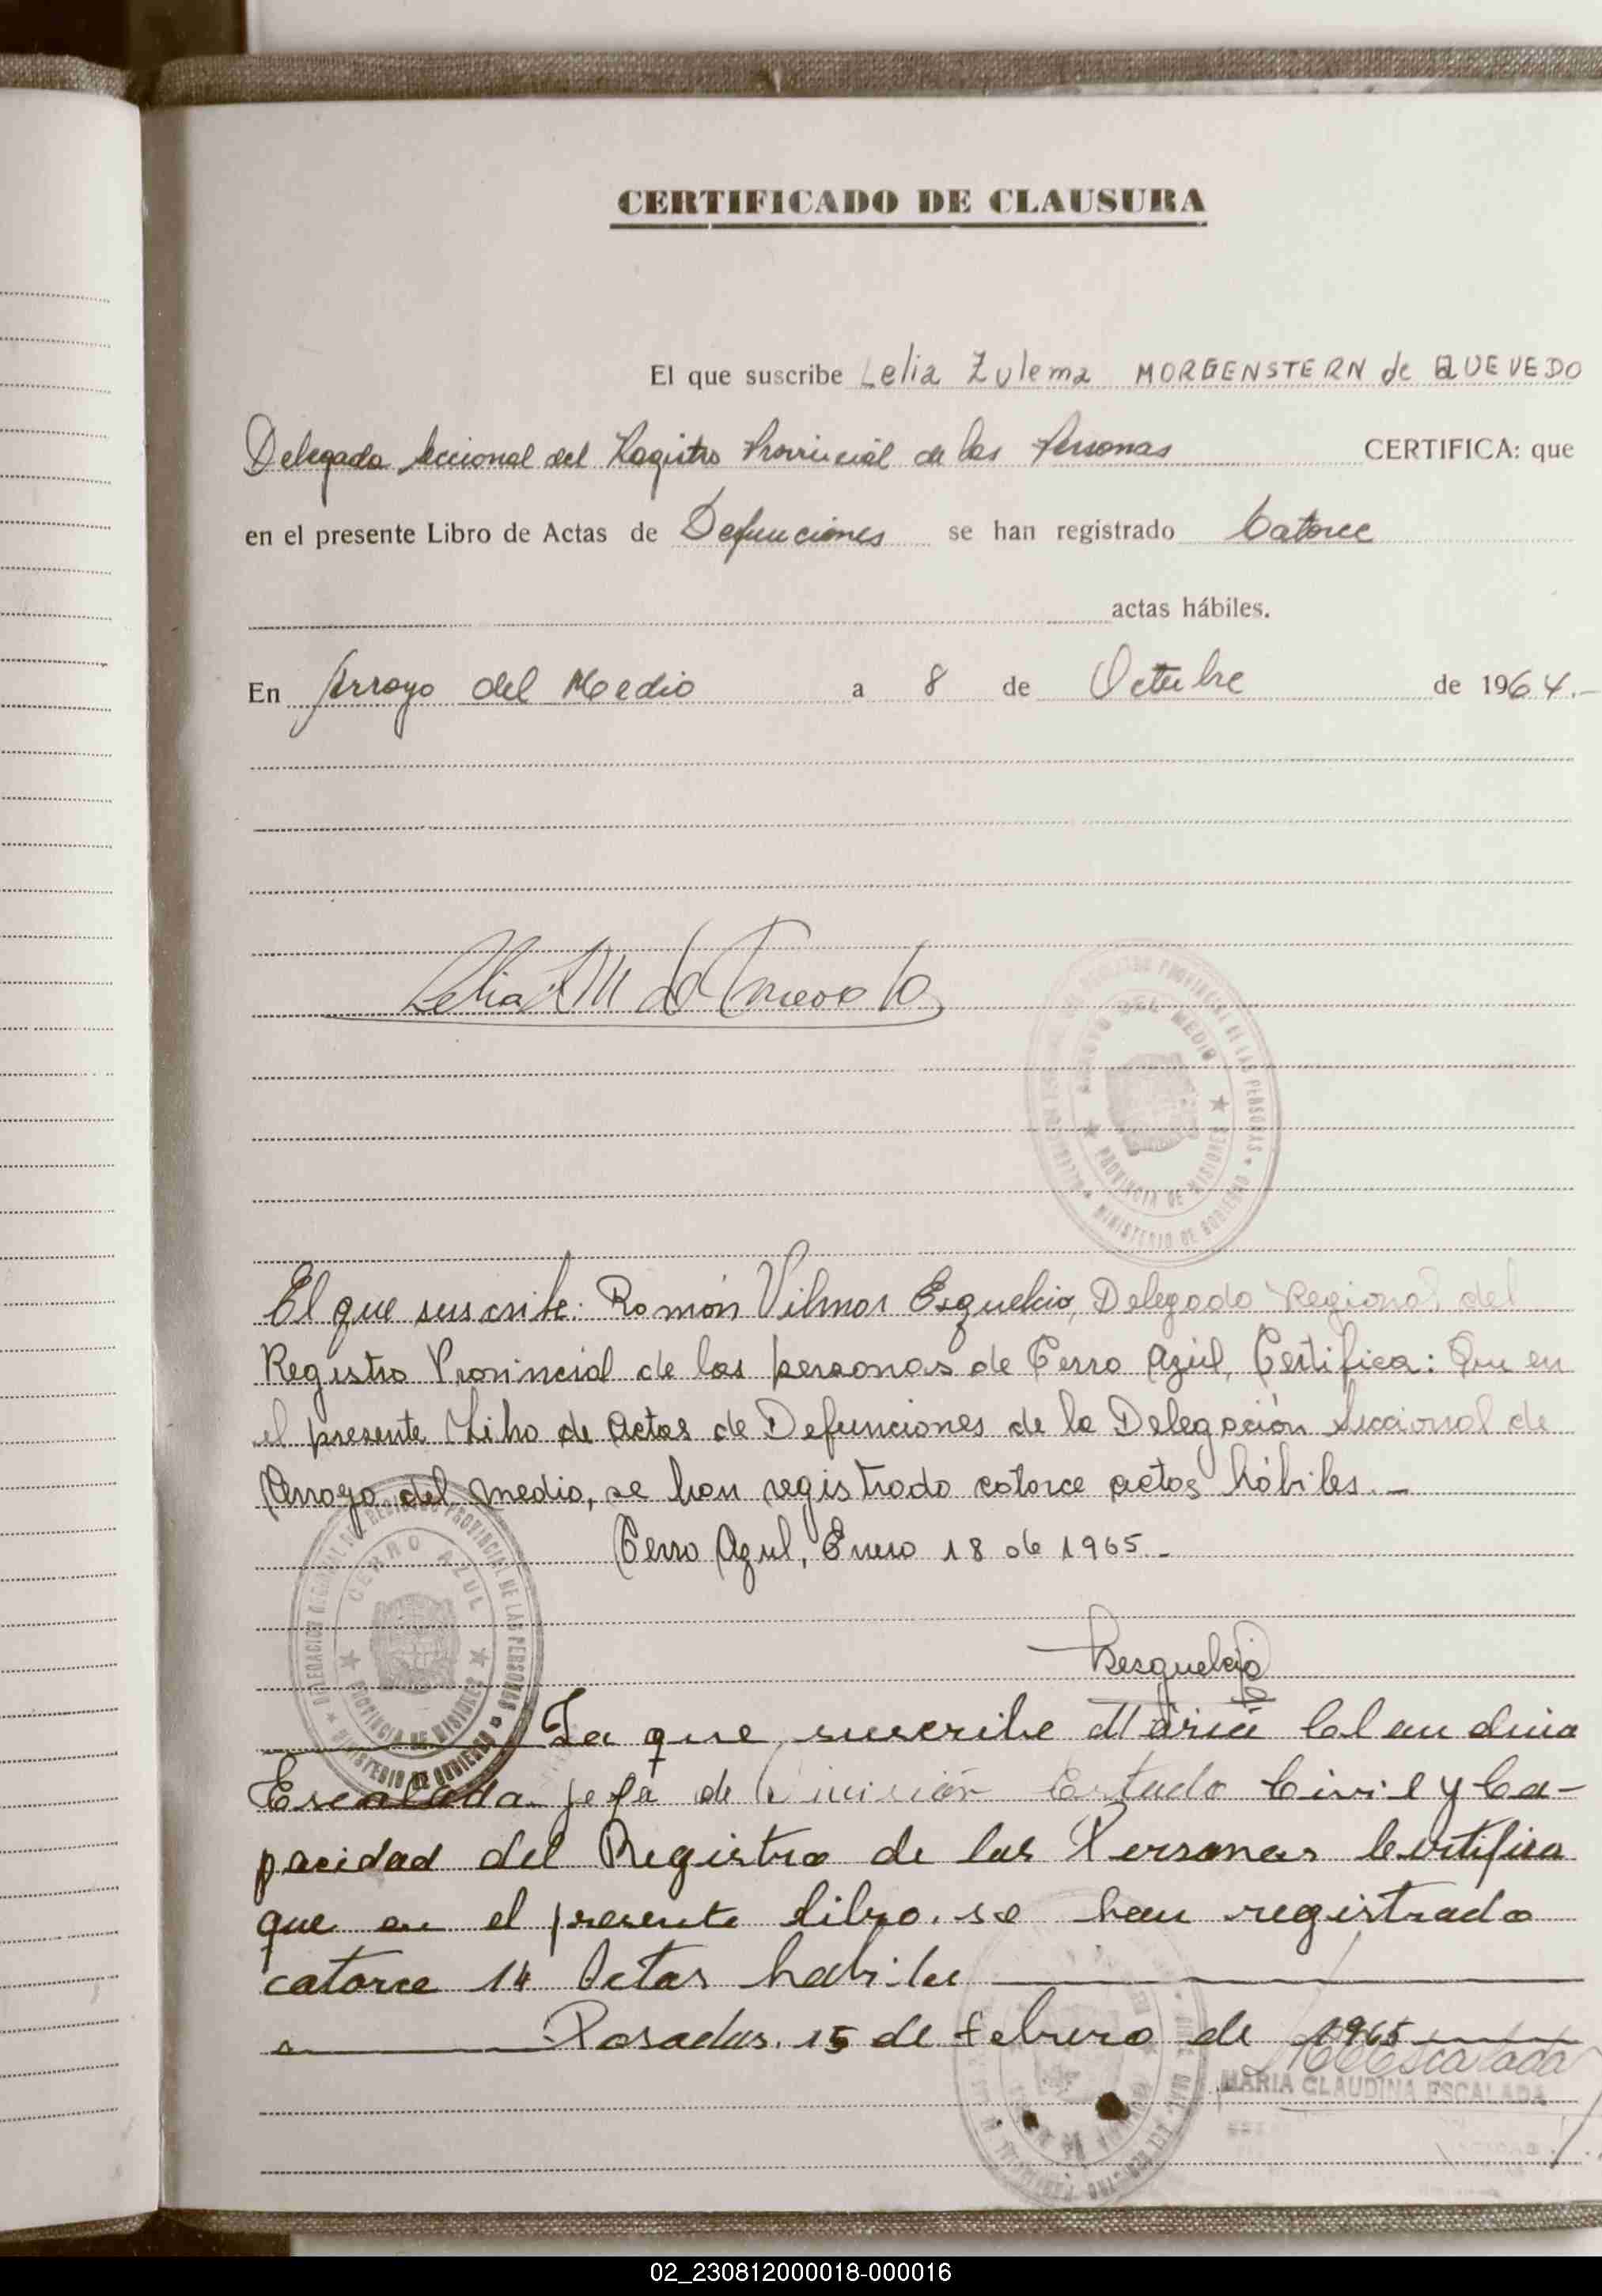 CERTIFICADO DE CLAUSURA
El que suscribe Lelia Zulema MORGENSTERN de QUEVEDO
Delegada Seccional del Registro Provincial de las Personas CERTIFICA: que
en el presente Libro de Actas de Defunciones se han registrado Catorce
actas hábiles.
En Arroyo del Medio a 8 de Octubre de 1964.-
Lelia Z M de Quevedo
REGISTRO PROVINCIAL DE LAS PERSONAS
ARROYO DEL MEDIO
PROVINCIA DE MISIONES
MINISTERIO DE GOBIERNO
El que suscribe: Ramón Vilmar Esquelcio, Delegado Regional del
Registro Provincial de las personas de Cerro Azul, Certifica: Que en
el presente Libro de Actas de Defunciones de la Delegación Seccional de
Arroyo del Medio, se han registrado catorce actas hábiles.-
Cerro Azul, Enero 18 de 1965.-
DELEGACION REGIONAL DEL REGISTRO PROVINCIAL DE LAS PERSONAS
CERRO AZUL
PROVINCIA DE MISIONES
MINISTERIO DE GOBIERNO
La que suscribe María Claudina
Escalada jefa de División Estado Civil y Ca-
pacidad del Registro de las Personas Certifica
que en el presente libro. se han registrado
catorce 14 Actas habiles
Posadas. 15 de febrero de 1965
MCEscalada
MARIA CLAUDINA ESCALADA
02_230812000018-000016